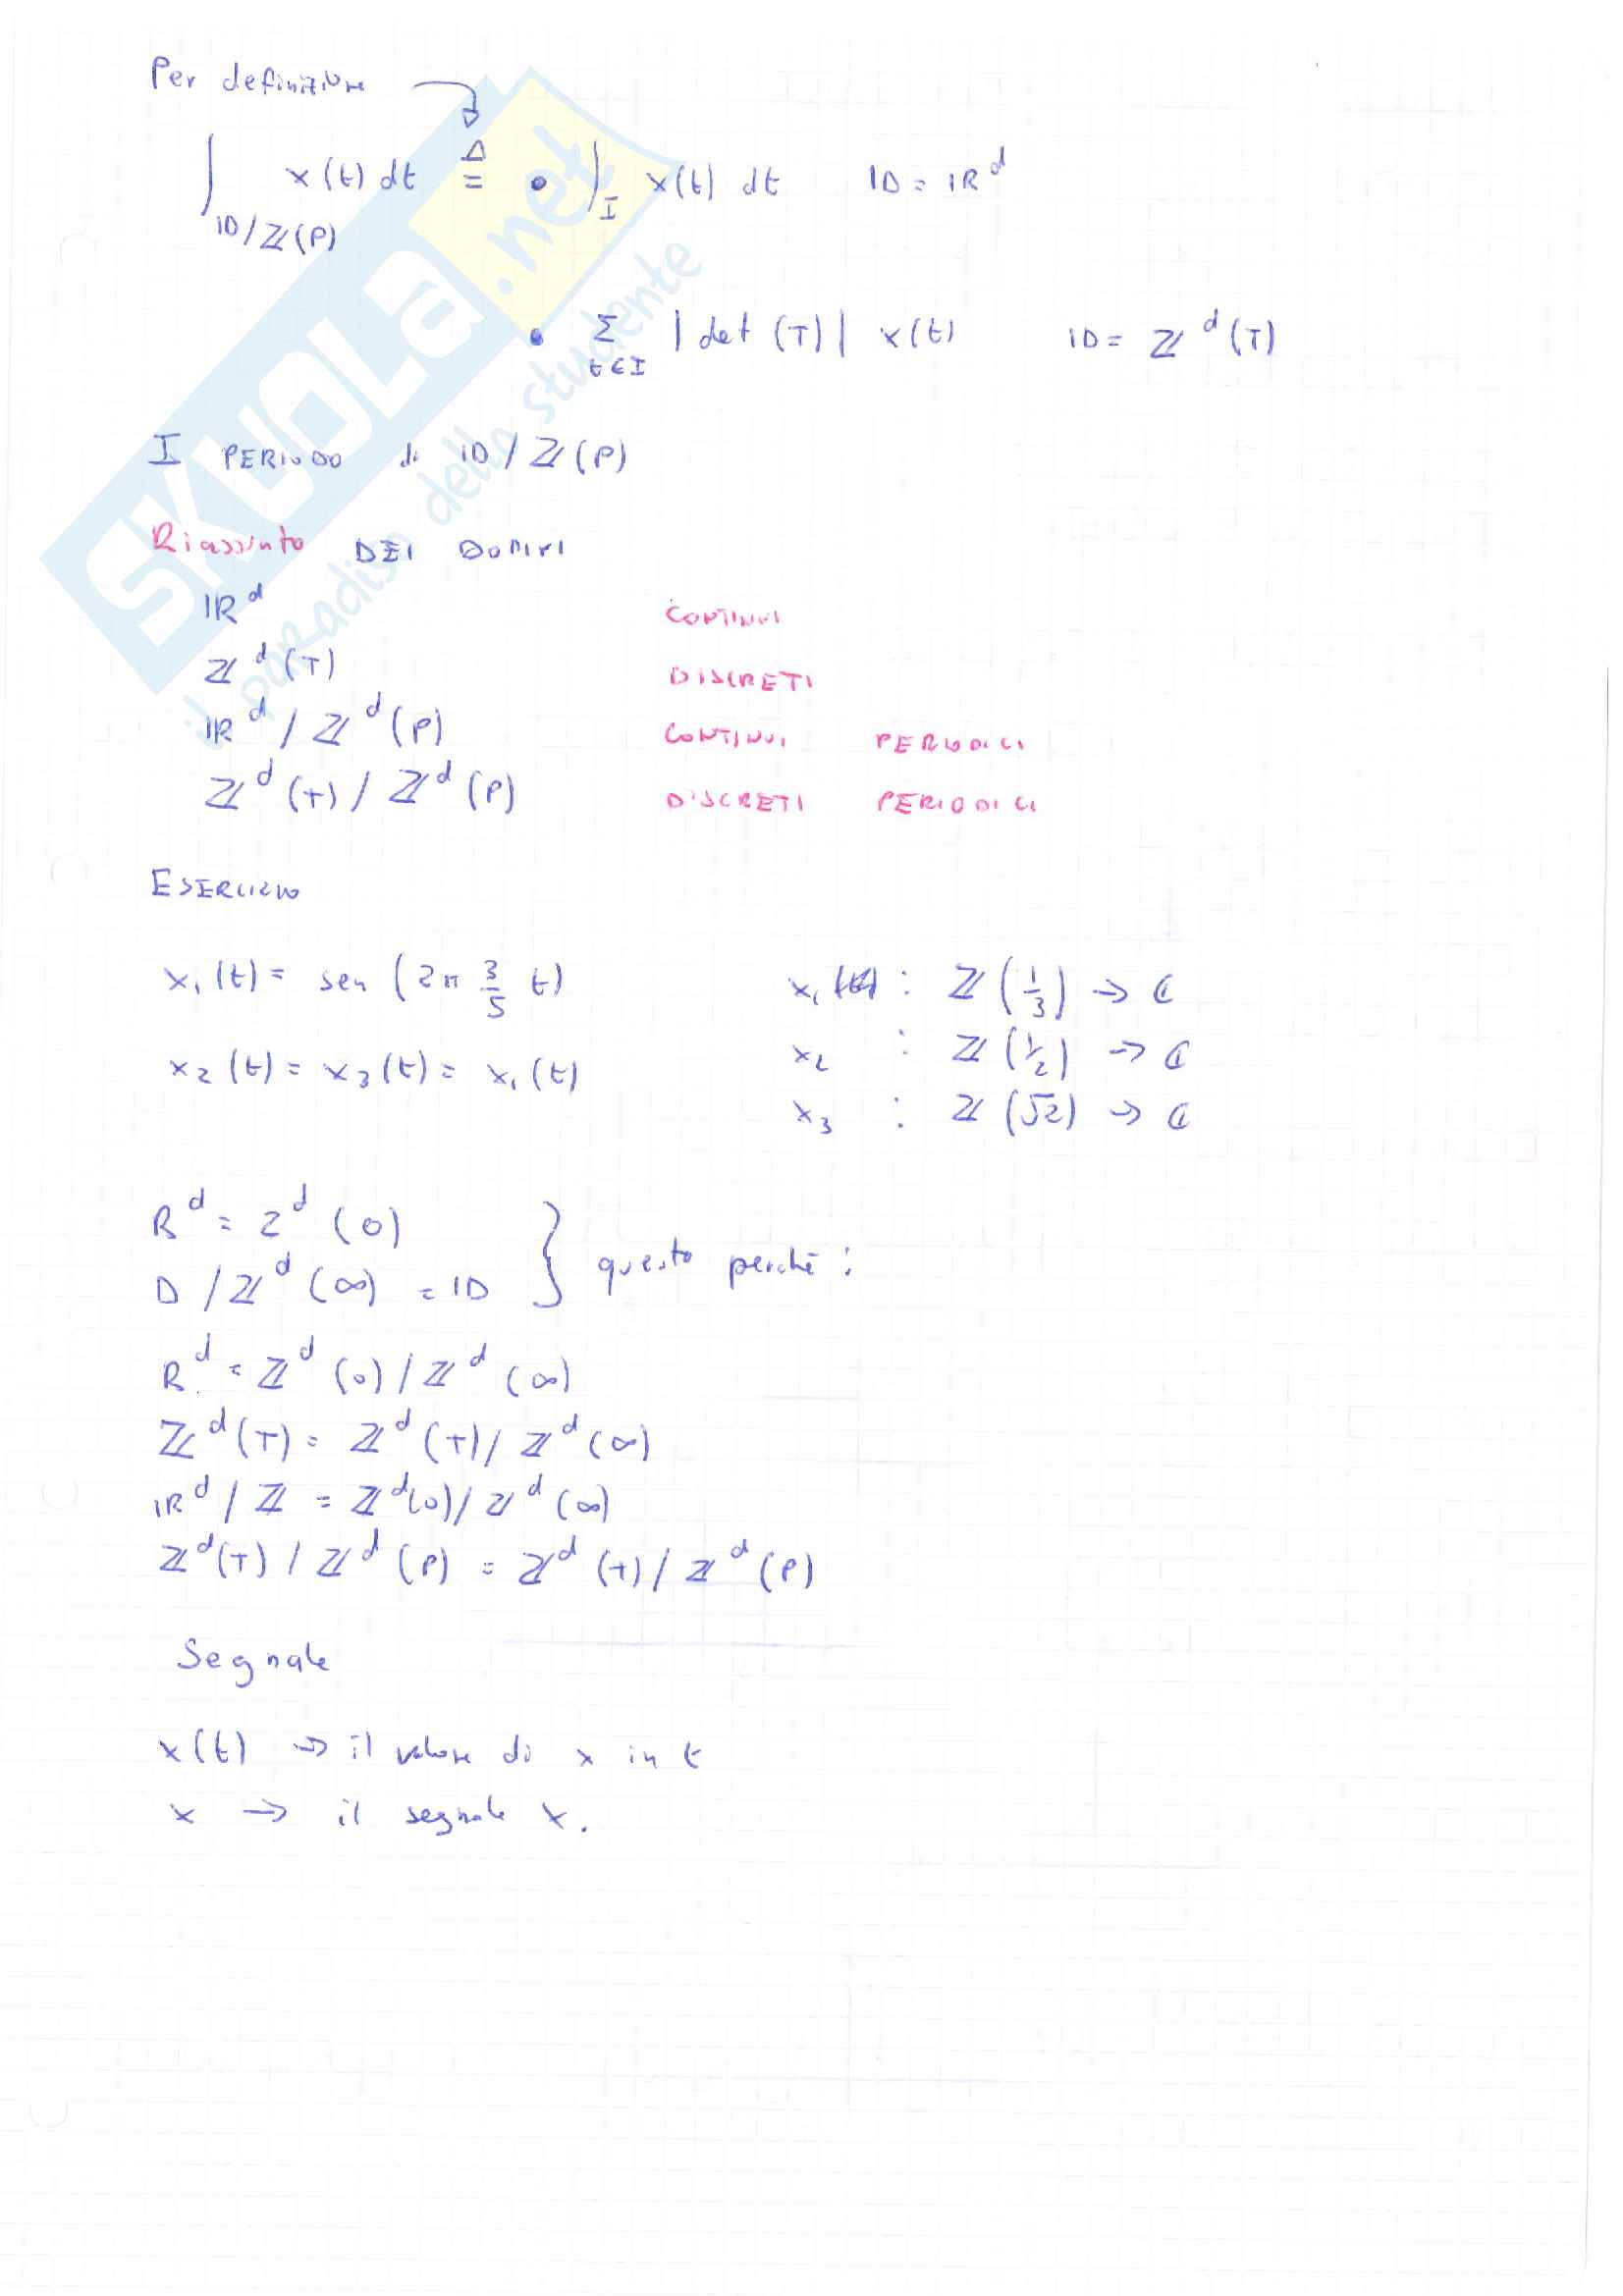 Per definizione
∫_{ID/ℤ(P)} x(t) dt ≜ • ∫_I x(t) dt ID = IR^d
• Σ_{t∈I} |det (T)| x(t) ID = ℤ^d (T)
I PERIODO di ID / ℤ(P)
Riassunto DEI DOMINI
IR^d CONTINUI
ℤ^d (T) DISCRETI
IR^d / ℤ^d (P) CONTINUI PERIODICI
ℤ^d (T) / ℤ^d (P) DISCRETI PERIODICI
ESERCIZIO
x₁(t) = sen (2π 3/5 t) x₁ : ℤ(1/3) → ℂ
x₂(t) = x₃(t) = x₁(t) x₂ : ℤ(1/2) → ℂ
x₃ : ℤ(√2) → ℂ
R^d = Z^d (0)
D / ℤ^d (∞) = ID } questo perchè :
R^d = ℤ^d (0) / ℤ^d (∞)
ℤ^d (T) = ℤ^d (T) / ℤ^d (∞)
IR^d / ℤ = ℤ^d (0) / ℤ^d (∞)
ℤ^d (T) / ℤ^d (P) = ℤ^d (T) / ℤ^d (P)
Segnale
x(t) → il valore di x in t
x → il segnale x.
SKUOLA.net
il paradiso dello studente